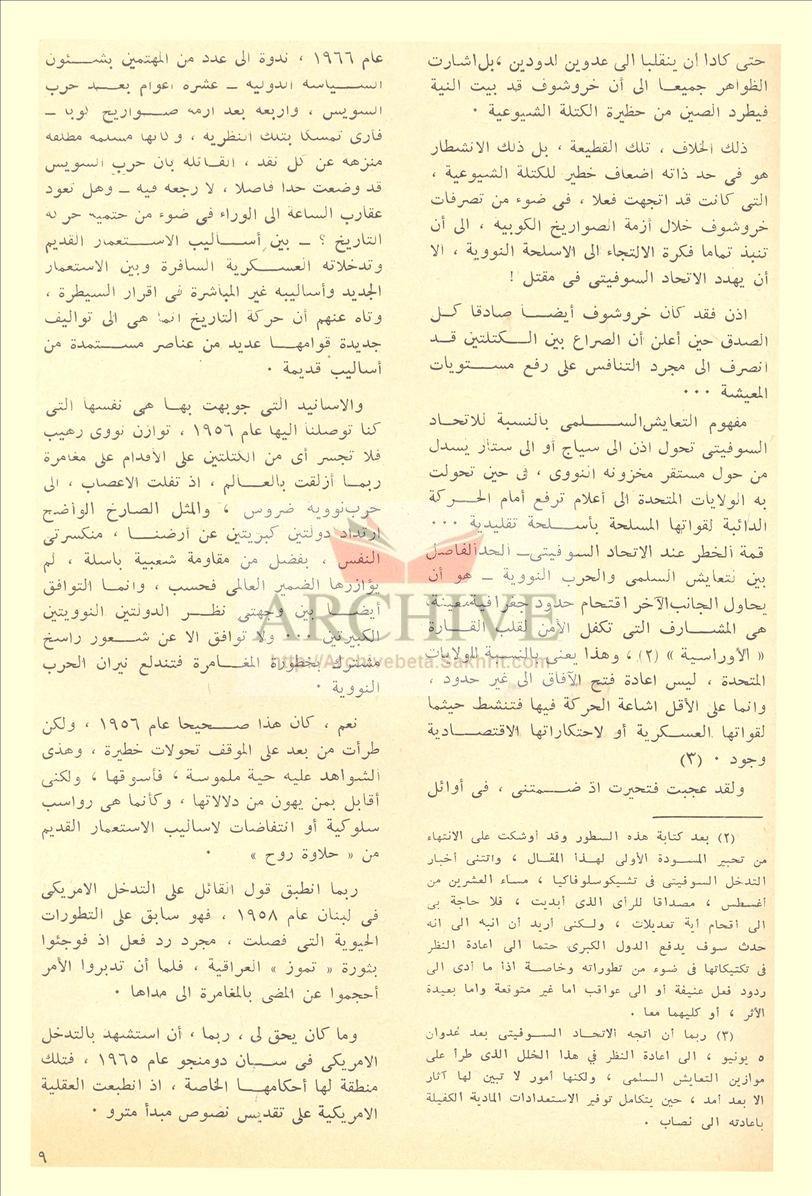 حتى كادا أن ينقلبا الى عدوين لدودين ، بل اشارت
الظواهر جميعا الى أن خروشوف قد بيت النية
فيطرد الصين من حظيرة الكتلة الشيوعية ٠
ذلك الخلاف ، تلك القطيعة ، بل ذلك الانشطار
هو فى حد ذاته اضعاف خطير للكتلة الشيوعية ،
التى كانت قد اتجهت فعلا ، فى ضوء من تصرفات
خروشوف خلال أزمة الصواريخ الكوبيه ، الى أن
تنبذ تماما فكرة الالتجاء الى الاسلحة النووية ، الا
أن يهدد الاتحاد السوفيتى فى مقتل !
اذن فقد كان خروشوف أيضا صادقا كل
الصدق حين أعلن أن الصراع بين الكتلتين قد
انصرف الى مجرد التنافس على رفع مستويات
المعيشة ٠٠٠
مفهوم التعايش السلمى بالنسبة للاتحاد
السوفيتى تحول اذن الى سياج أو الى ستار يسدل
من حول مستقر مخزونه النووى ، فى حين تحولت
به الولايات المتحدة الى أعلام ترفع أمام الحركة
الدائبة لقواتها المسلحة بأسلحة تقليدية ٠٠٠
قمة الخطر عند الاتحاد السوفيتى ـ الحد الفاصل
بين التعايش السلمى والحرب النووية ـ هو أن
يحاول الجانب الآخر اقتحام حدود جغرافية معينة،
هى المشارف التى تكفل الأمن لقلب القارة
« الأوراسية » (٢) ، وهذا يعنى بالنسبة للولايات
المتحدة ، ليس اعادة فتح الآفاق الى غير حدود ،
وانما على الأقل اشاعة الحركة فيها فتنشط حيثما
لقواتها العسكرية أو لاحتكاراتها الاقتصادية
وجود ٠ (٣)
ولقد عجبت فتحيرت اذ ضمتنى ، فى أوائل
(٢) بعد كتابة هذه السطور وقد أوشكت على الانتهاء
من تحبير المسودة الأولى لهذا المقال ، واتتنى أخبار
التدخل السوفيتى فى تشيكوسلوفاكيا ، مساء العشرين من
أغسطس ، مصداقا للرأى الذى أبديت ، فلا حاجة بى
الى أقحام أية تعديلات ، ولكنى أريد أن انبه الى انه
حدث سوف يدفع الدول الكبرى حتما الى اعادة النظر
فى تكتيكاتها فى ضوء من تطوراته وخاصة اذا ما أدى الى
ردود فعل عنيفة أو الى عواقب اما غير متوقعة واما بعيدة
الأثر ، أو كليهما معا ٠
(٣) ربما أن اتجه الاتحاد السوفيتى بعد عدوان
٥ يونيو ، الى اعادة النظر في هذا الخلل الذى طرأ على
موازين التعايش السلمى ، ولكنها أمور لا تبين لها آثار
الا بعد أمد ، حين يتكامل توفير الاستعدادات المادية الكفيلة
باعادته الى نصاب ٠
عام ١٩٦٦ ، ندوة الى عدد من المهتمين بشئون
السياسة الدولية ـ عشرة أعوام بعد حرب
السويس ، واربعه بعد ازمه صواريخ كوبا ـ
فأرى تمسكا بتلك النظريه ، وكأنها مسلمه مطلقه
منزهه عن كل نقد ، القائله بأن حرب السويس
قد وضعت حدا فاصلا ، لا رجعه فيه ـ وهل تعود
عقارب الساعة الى الوراء فى ضوء من حتمية حركة
التاريخ ؟ ـ بين أساليب الاستعمار القديم
وتدخلاته العسكرية السافرة وبين الاستعمار
الجديد وأساليبه غير المباشرة فى اقرار السيطرة ،
وتاه عنهم أن حركة التاريخ انما هى الى تواليف
جديدة قوامها عديد من عناصر مستمدة من
أساليب قديمة ٠
والاسانيد التى جوبهت بها هى نفسها التى
كنا توصلنا اليها عام ١٩٥٦ ، توازن نووى رهيب
فلا تجسر أى من الكتلتين على الاقدام على مغامرة
ربما أزلقت بالعالم ، اذ تفلت الاعصاب ، الى
حرب نوويه ضروس ، والمثل الصارخ الواضح
ارتداد دولتين كبريتين عن أرضنا ، منكسرتى
النفس ، بفضل من مقاومة شعبية باسلة ، لم
يؤازرها الضمير العالمى فحسب ، وانما التوافق
أيضا بين وجهتى نظر الدولتين النوويتين
الكبيرتين ٠٠٠ ولا توافق الا عن شعور راسخ
مشترك بخطورة المغامرة فتندلع نيران الحرب
النووية ٠
نعم ، كان هذا صحيحا عام ١٩٥٦ ، ولكن
طرأت من بعد على الموقف تحولات خطيرة ، وهذى
الشواهد عليه حية ملموسة ، فأسوقها ، ولكنى
أقابل بمن يهون من دلالاتها ، وكأنما هى رواسب
سلوكية أو انتفاضات لاساليب الاستعمار القديم
من « حلاوة روح » ٠
ربما انطبق قول القائل على التدخل الامريكى
فى لبنان عام ١٩٥٨ ، فهو سابق على التطورات
الحيوية التى فصلت ، مجرد رد فعل اذ فوجئوا
بثورة « تموز » العراقية ، فلما أن تدبروا الأمر
أحجموا عن المضى بالمغامرة الى مداها ٠
وما كان يحق لى ، ربما ، أن استشهد بالتدخل
الامريكى فى سان دومنجو عام ١٩٦٥ ، فتلك
منطقة لها أحكامها الخاصة ، اذ انطبعت العقلية
الامريكية على تقديس نصوص مبدأ مترو ٠
٩
ARCHIVE
http://Archivebeta.Sakhrit.com